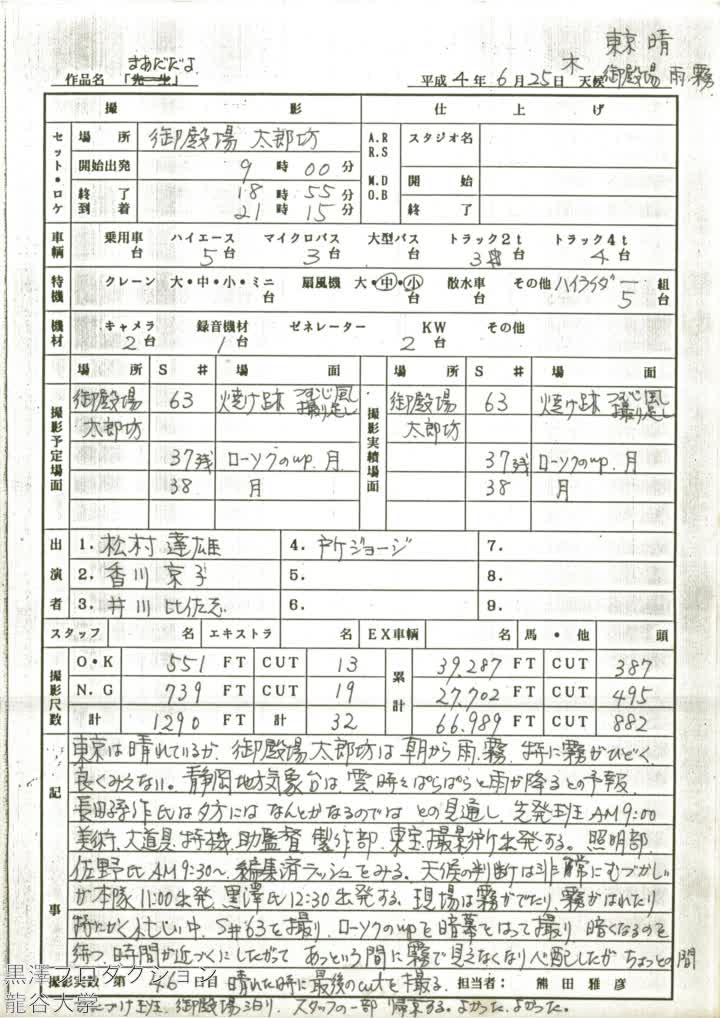 まあだだよ
作品名 「先生」
東京 晴
平成 4 年 6 月 25 日 木 天候 御殿場 雨・霧
撮 影 仕 上 げ
セット・ロケ 場所 御殿場 太郎坊 A.R R.S スタジオ名
開始出発 9 時 00 分
終了 18 時 55 分 M.D O.B 開始
到着 21 時 15 分 終了
車輌 乗用車 台 ハイエース 5 台 マイクロバス 3 台 大型バス 台 トラック2t 3 台 トラック4t 4 台
特機 クレーン 大・中・小・ミニ 台 扇風機 大・中・小 台 散水車 台 その他 ハイライダー 5 組 台
機材 キャメラ 2 台 録音機材 1 台 ゼネレーター KW 2 台 その他
場所 S # 場面 場所 S # 場面
撮影予定場面 御殿場 太郎坊 63 焼け跡 つむじ風 撮り足し
37残 ローソクのup. 月
38 月
撮影実績場面 御殿場 太郎坊 63 焼け跡 つむじ風 撮り足し
37残 ローソクのup. 月
38 月
出演者 1. 松村達雄 4. 所ジョージ 7.
2. 香川京子 5. 8.
3. 井川比佐志 6. 9.
スタッフ 名 エキストラ 名 EX車輌 名 馬・他 頭
撮影尺数 O・K 551 FT CUT 13 累計 39,287 FT CUT 387
N.G 739 FT CUT 19 27,702 FT CUT 495
計 1290 FT 計 32 66,989 FT CUT 882
記事
東京は晴れているが、御殿場太郎坊は朝から雨、霧、特に霧がひどく
良くみえない。静岡地方気象台は曇、時々ぱらぱらと雨が降るとの予報
氏は夕方にはなんとかなるのでは との見通し、先発班 AM9:00
美術、大道具、特機、助監督、製作部、東宝撮影所出発する。照明部
佐野氏AM9:30〜、編集済ラッシュをみる。天候の判断は非常にむづかしい
が本隊11:00出発、黒澤氏12:30出発する。現場は霧がでたり、霧がはれたり
特にがく忙しい中、S#63を撮り、ローソクのupを暗幕をはって撮り、暗くなるのを
待つ、時間が近づくにしたがって あっという間に霧で見えなくなり心配したが ちょっとの間
撮影実数 第 46 日 晴れた時に最後のcutを撮る。 担当者: 熊田雅彦
班、御殿場泊り、スタッフの一部 帰京する。よかった、よかった。
黒澤プロダクション
龍谷大学